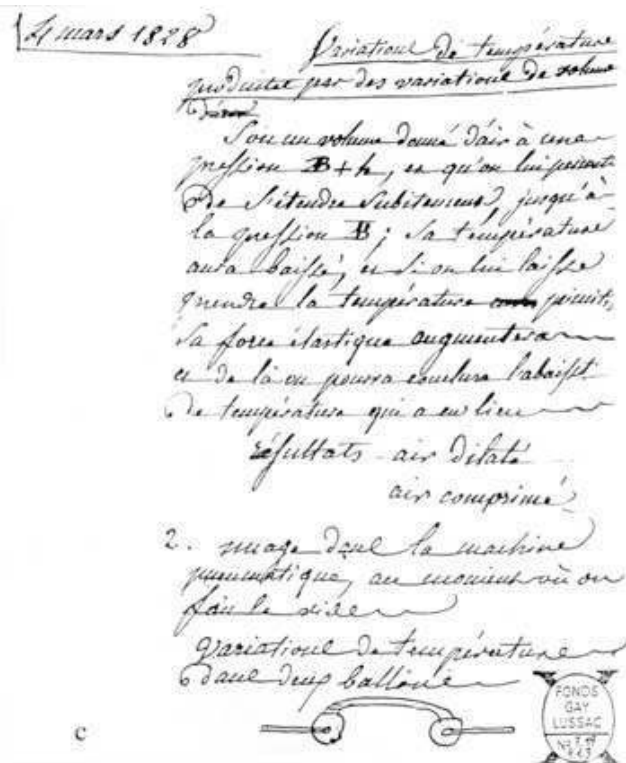 4 mars 1828
Variations de température
produites par des variations de volume
Soit un volume donné d'air à une
pression B + h, et qu'on lui permette
de s'étendre subitement, jusqu'à
la pression B; sa température
aura baissé, et si on lui laisse
prendre la température primit.
sa force élastique augmentera
et de là on pourra conclure l'abaisst.
de température qui a eu lieu
résultats air dilaté
air comprimé
2. nuage dans la machine
pneumatique, au moment où on
fait le vide
Variations de température
dans deux ballons
C
FONDS
GAY
LUSSAC